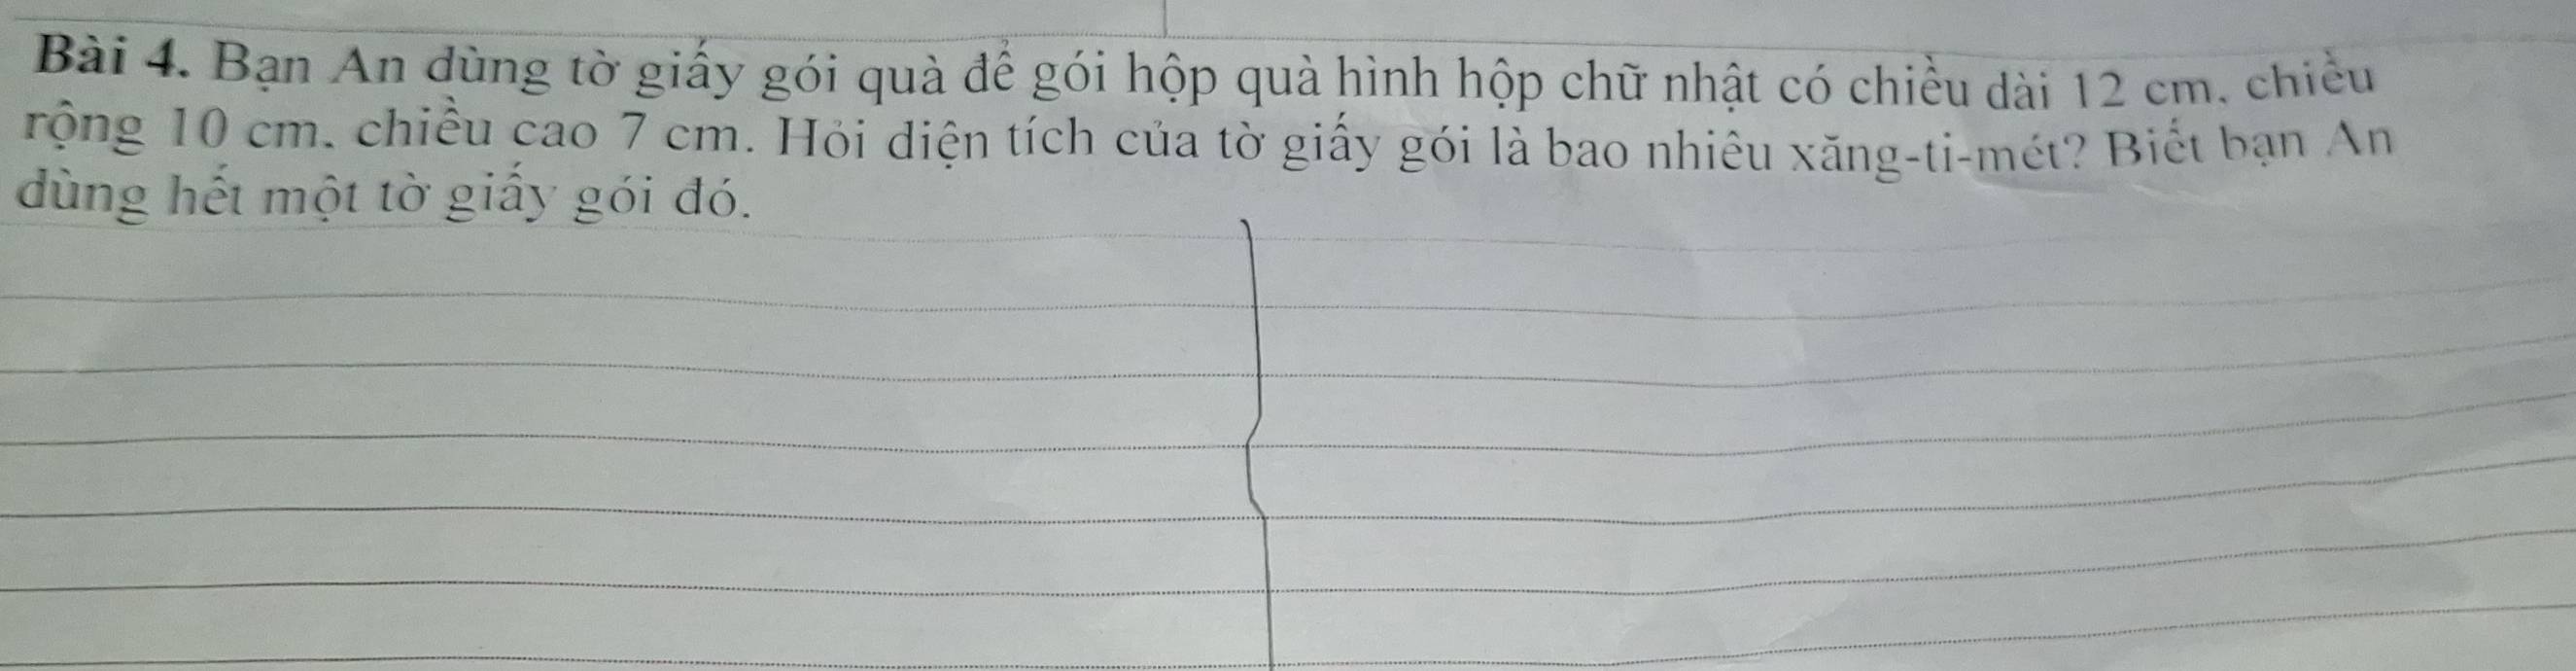 Bài 4. Bạn An dùng tờ giấy gói quà để gói hộp quà hình hộp chữ nhật có chiều dài 12 cm, chiều
rộng 10 cm, chiều cao 7 cm. Hỏi diện tích của tờ giấy gói là bao nhiêu xăng-ti-mét? Biết bạn An
dùng hết một tờ giấy gói đó.